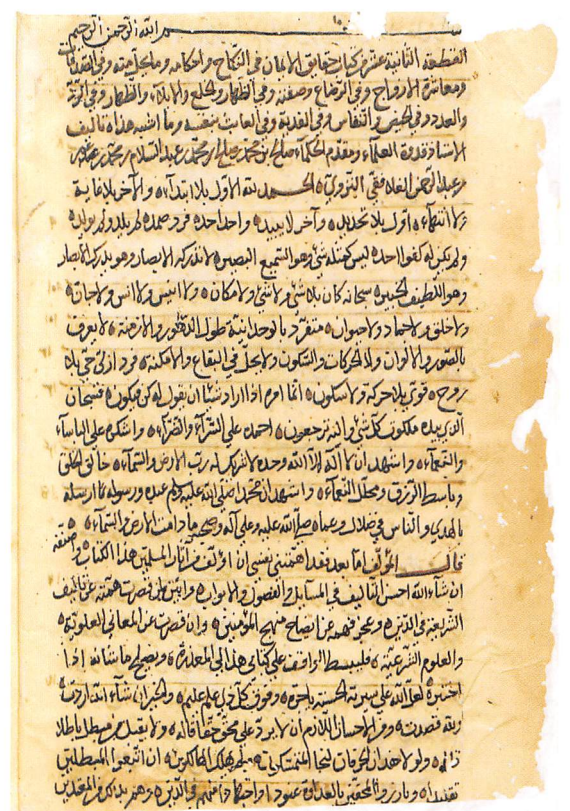 بسم الله الرحمن الرحيم
القطعة الثانية عشر من كتاب حقايق الايمان في النكاح واحكامه وما يحل منه وفي الصدقات
ومعاشرة الازواج وفي الرضاع وصفته وفي الظهار والخلع والايلاء والظهار وفي
والعدد وفي الحيض والنفاس وفي الفدية وفي الغايب وما اشبه هذا تاليف
الاستاذ قدوة العلماء ومقدم الحكماء صالح بن محمد بن صالح بن محمد بن عبد السلام بن محمد بن
بن عبد الرحمن الفلاهقي النزوي الحمد لله الاول بلا ابتداء والآخر بلا غاية
ولا انتهاء اول بلا تحديد وآخر لا يبيد واحد احد فرد صمد لم يلد ولم يولد
ولم يكن له كفوا احد ليس كمثله شيء وهو السميع البصير لا تدركه الابصار وهو يدرك الابصار
وهو اللطيف الخبير سبحانه كان بلا شيء ولا شيء ولا مكان ولا انيس ولا انس ولا جان
ولا خلق ولا جماد ولا حيوان متفرد بالوحدانية طول الدهور والازمنة لا يعرف
بالصور والالوان ولا الحركات والسكون ولا يحل في البقاع والامكنة فرد ازلي حي بلا
روح قوي بلا حركة ولا سكون انما امره اذا اراد شيئا ان يقول له كن فيكون فسبحان
الذي بيده ملكوت كل شيء واليه ترجعون احمده على السراء والضراء واشكره على الباساء
والنعماء واشهد ان لا اله الا الله وحده لا شريك له رب الارض والسماء خالق الخلق
وباسط الرزق ومجلل النعماء واشهد ان محمدا صلى الله عليه وسلم عبده ورسوله ارسله
بالهدى والناس في ضلال وعماه صلى الله عليه وعلى آله وصحبه ما دامت الارض والسماء
قال المؤلف اما بعد فقد اهمتني نفسي ان اؤلف من آثار المسلمين هذا الكتاب واصنفه
ان شاء الله احسن التاليف في المسايل والفصول والابواب وابين فمن قصرت همته عن تاليف
الشريعة في الدين وعجز فهمه عن ايضاح منهج المؤمنين وان قصرت عن المعاني العلوية
والعلوم الشرعية فليبسط الواقف على كتابي هذا لي المعذرة ويصلح ما شانه اذا
اختبره لعل الله على سيرته الحسنة ياجره وفوق كل ذي علم عليم والخير ان شاء الله اردت
قصدت ومن الاحسان اللازم ان لا يرد على محق حقا قاله ولا يقبل من مبطل باطلا
ولولا هدان لنجا المتمسكين ولم يهلك الهالكين ان اتبعوا المبطلين
تقليدا وبارزوا المحقين بالعداوة في الدين وهم بذلك من المعتدين